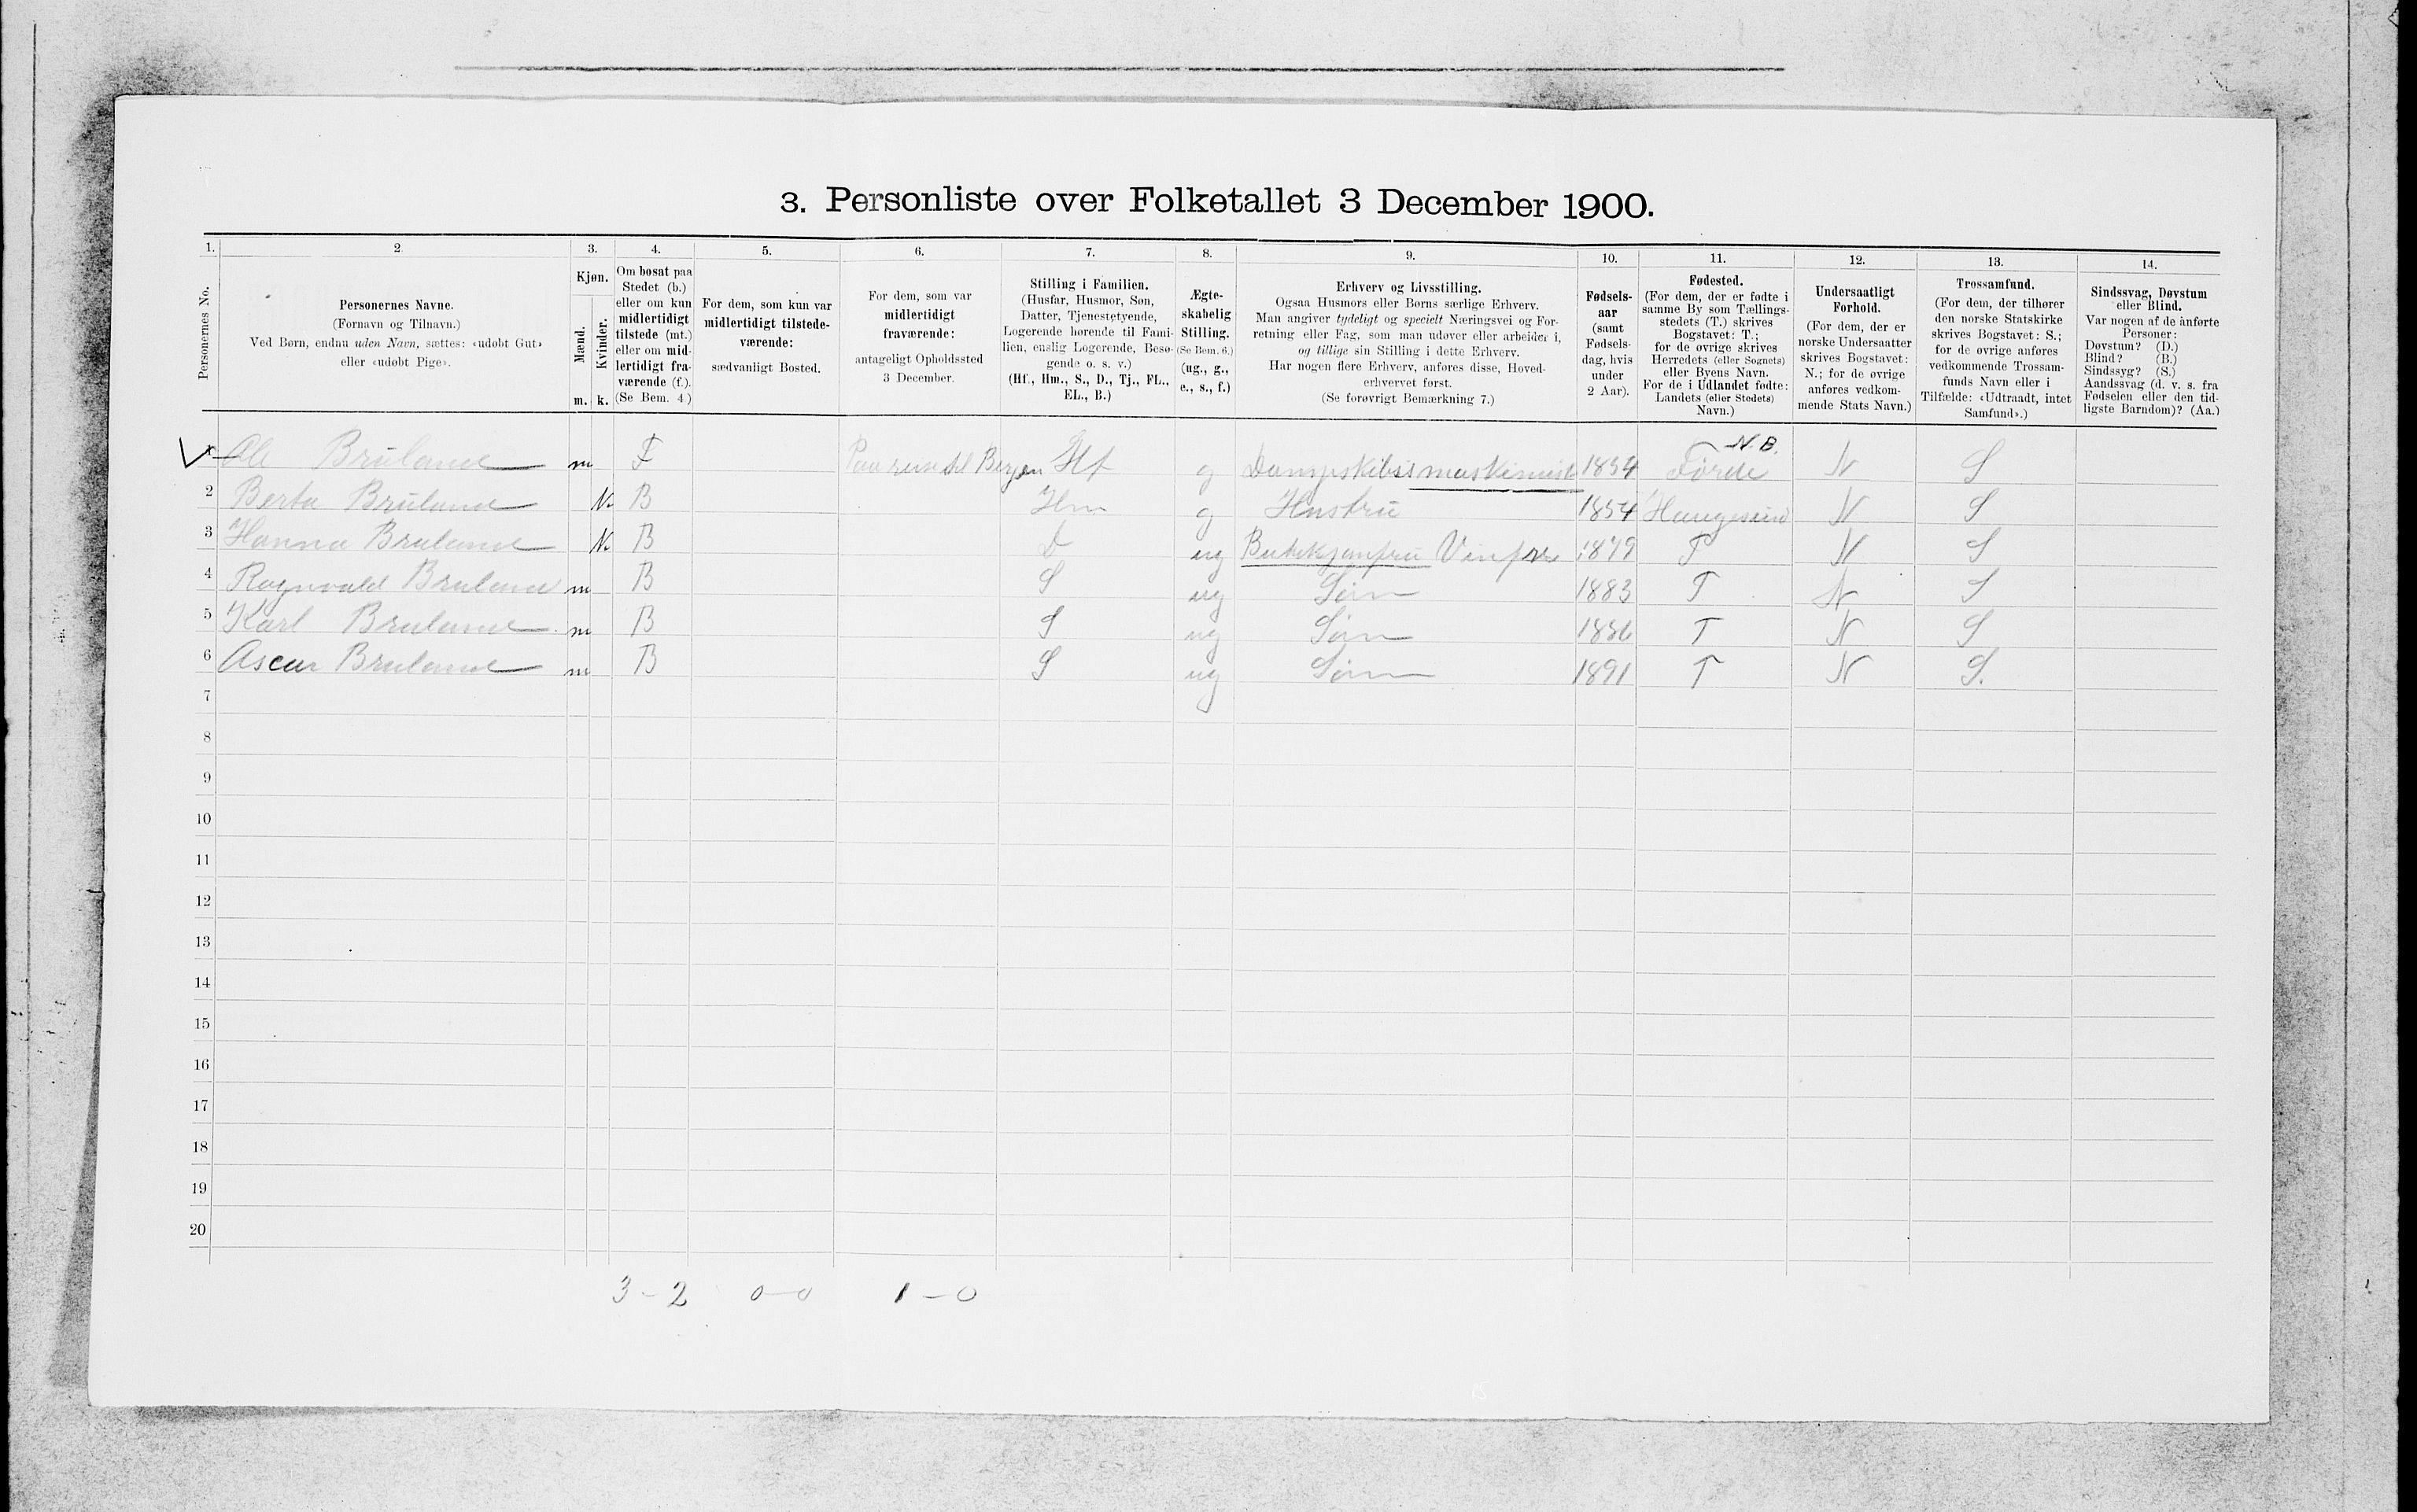 3. Personliste over Folketallet 3 December 1900.
1. 2. 3. 4. 5. 6. 7. 8. 9. 10. 11. 12. 13. 14.
Personernes No.
Personernes Navne.
(Fornavn og Tilnavn.)
Ved Børn, endnu uden Navn, sættes: «udøbt Gut»
eller «udøbt Pige».
Kjøn.
Mænd.
Kvinder.
m. k.
Om bosat paa
Stedet (b.)
eller om kun
midlertidigt
tilstede (mt.)
eller om mid-
lertidigt fra-
værende (f.).
(Se Bem. 4.)
For dem, som kun var
midlertidigt tilstede-
værende:
sædvanligt Bosted.
For dem, som var
midlertidigt
fraværende:
antageligt Opholdssted
3 December.
Stilling i Familien.
(Husfar, Husmor, Søn,
Datter, Tjenestetyende,
Logerende hørende til Fami-
lien, enslig Logerende, Besø-
gende o. s. v.)
(Hf., Hm., S., D., Tj., FL.,
EL., B.)
Ægte-
skabelig
Stilling.
(Se Bem. 6.)
(ug., g.,
e., s., f.)
Erhverv og Livsstilling.
Ogsaa Husmors eller Børns særlige Erhverv.
Man angiver tydeligt og specielt Næringsvei og For-
retning eller Fag, som man udøver eller arbeider i,
og tillige sin Stilling i dette Erhverv.
Har nogen flere Erhverv, anføres disse, Hoved-
erhvervet først.
(Se forøvrigt Bemærkning 7.)
Fødsels-
aar
(samt
Fødsels-
dag, hvis
under
2 Aar).
Fødested.
(For dem, der er fødte i
samme By som Tællings-
stedets (T.) skrives
Bogstavet: T.;
for de øvrige skrives
Herredets (eller Sognets)
eller Byens Navn.
For de i Udlandet fødte:
Landets (eller Stedets)
Navn.)
Undersaatligt
Forhold.
(For dem, der er
norske Undersaatter
skrives Bogstavet:
N.; for de øvrige
anføres vedkom-
mende Stats Navn.)
Trossamfund.
(For dem, der tilhører
den norske Statskirke
skrives Bogstavet: S.;
for de øvrige anføres
vedkommende Trossam-
funds Navn eller i
Tilfælde: «Udtraadt, intet
Samfund».)
Sindssvag, Døvstum
eller Blind.
Var nogen af de anførte
Personer:
Døvstum? (D.)
Blind? (B.)
Sindssyg? (S.)
Aandssvag (d. v. s. fra
Fødselen eller den tid-
ligste Barndom)? (Aa.)
N.B.
Ole Brüland m F Paa reise til Bergen Hf g Dampskibsmaskinist 1854 Førde N S
2 Berta Brüland K B Hm g Hustru 1854 Haugesund N S
3 Hanna Bruland K B D ug 1879 T N S
4 Ragnvald Bruland m B S ug Søn 1883 T N S
5 Karl Bruland m B S ug Søn 1886 T N S
6 Ascar Bruland m B S ug Søn 1891 T N S.
7
8
9
10
11
12
13
14
15
16
17
18
19
20
3 - 2 0 - 0 1 - 0